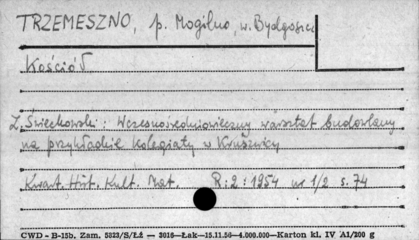 TRZEMESZNO, p. Mogilno, w. Bydgoszcz
Kościół
Z. Święchowski: Wczesnośredniowieczny warsztat budowlany
na przykładzie Kolegiaty w Kruszwicy
Kwart. Hist. Kult. Mat. R: 2: 1954 nr 1/2 s. 74
CWD - B-15b. Zam. 5823/S/Łż — 3016—Łak—15.11.56—4.000.000—Karton kl. IV A1/200 g